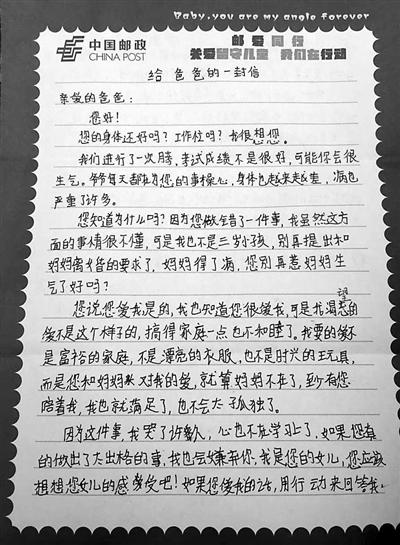 Baby, you are my angle forever
中国邮政
CHINA POST
邮爱同行
关爱留守儿童 我们在行动
给爸爸的一封信
亲爱的爸爸：
您好！
您的身体还好吗？工作忙吗？我很想您。
我们进行了一次月考，考试成绩不是很好，可能你会很
生气。爷爷每天都在为您的事操心，身体也越来越差，病也
严重了许多。
您知道为什么吗？因为您做错了一件事，我虽然这方
面的事情很不懂，可是我也不是三岁小孩，别再提出和
妈妈离婚的要求了，妈妈得了病，您别再惹妈妈生
气了好吗？
您说您爱我是的，我也知道您很爱我，可是我渴望的
爱不是这个样子的，搞得家庭一点也不和睦了。我要的爱不
是富裕的家庭，不是漂亮的衣服，也不是时兴的玩具，
而是您和妈妈对我的爱，就算妈妈不在了，至少有您
陪着我，我也就满足了，也不会太孤独了。
因为这件事，我哭了许多，心也不在学习上了，如果您真
的做出了太出格的事，我也会嫌弃你，我是您的女儿，您应该
想想您女儿的感受吧！如果您爱我的话，用行动来回答我。